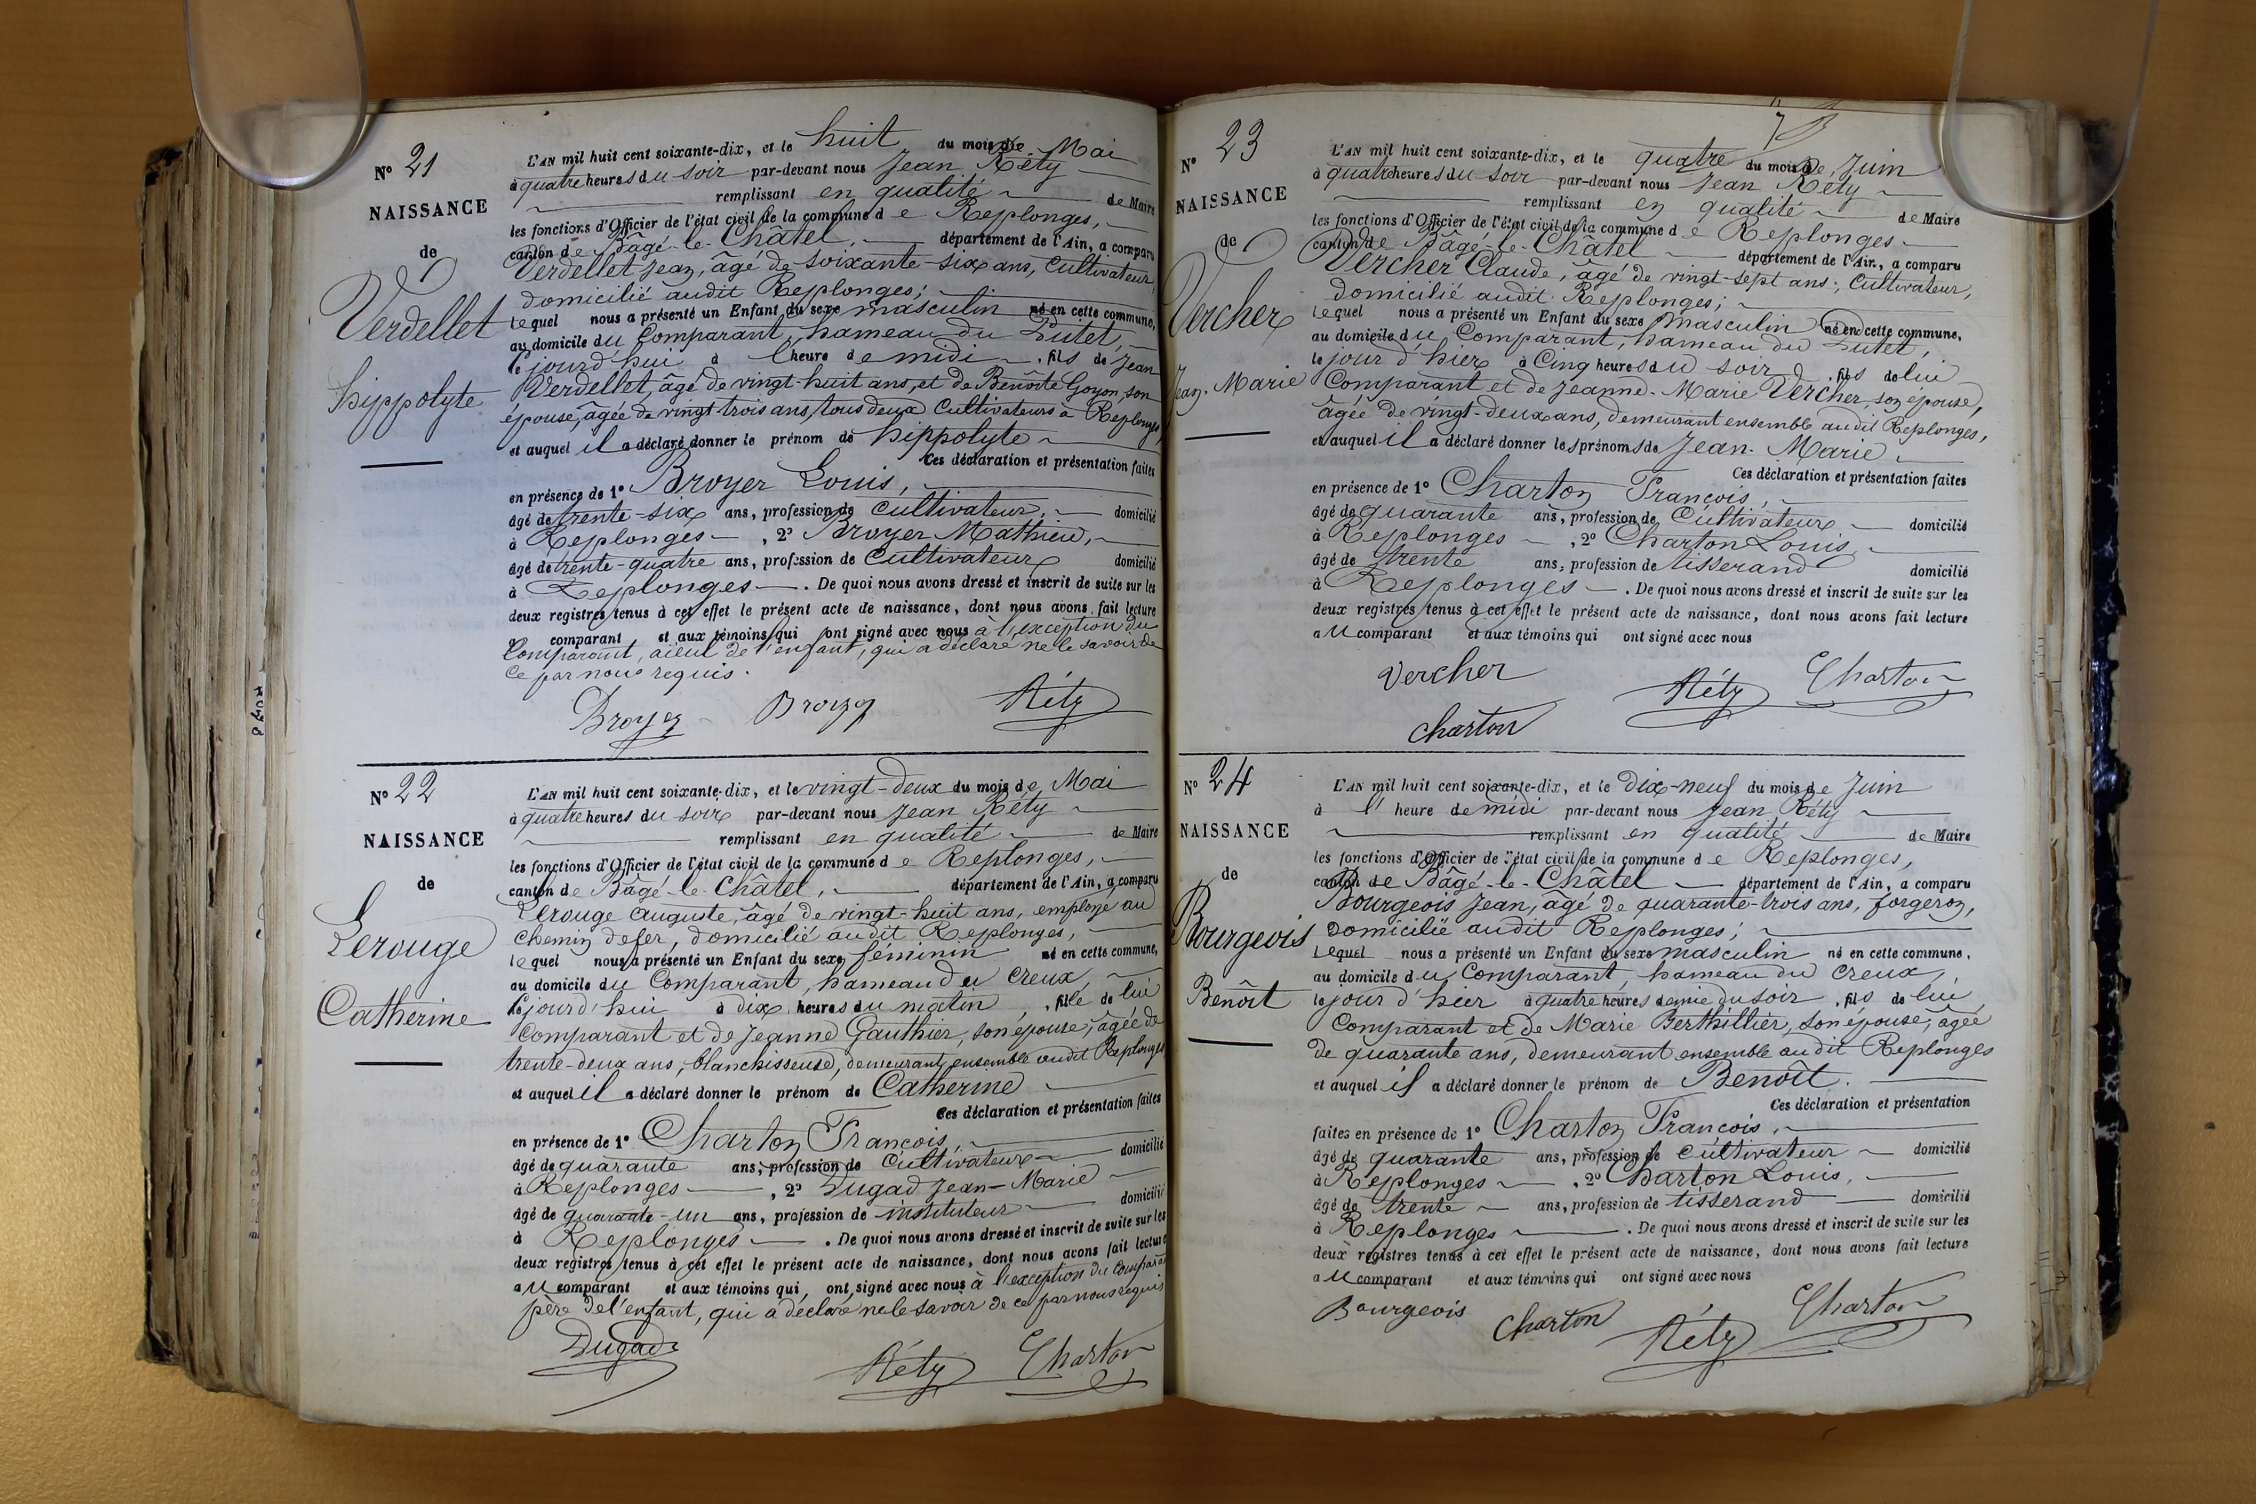 N° 21
NAISSANCE
de
Verdellet
hippolyte
L'AN mil huit cent soixante-dix, et le huit du mois de Mai
à quatre heures du soir par-devant nous Jean Réty
remplissant en qualité de Maire
les fonctions d'Officier de l'état civil de la commune de Replonges,
canton de Bâgé-le-Châtel, département de l'Ain, a comparu
Verdellet Jean, âgé de soixante-six ans, cultivateur,
domicilié audit Replonges;
lequel nous a présenté un Enfant du sexe masculin né en cette commune,
au domicile du Comparant, hameau du Lutet,
le jourd'hui à l'heure de midi, fils de Jean
Verdellet, âgé de vingt-huit ans, et de Benoîte Goyon, son
épouse, âgée de vingt-trois ans, tous deux Cultivateurs à Replonges,
et auquel il a déclaré donner le prénom de hippolyte
Ces déclaration et présentation faites
en présence de 1° Broyer Louis,
âgé de trente-six ans, profession de Cultivateur, domicilié
à Replonges, 2° Broyer Mathieu,
âgé de trente-quatre ans, profession de Cultivateur domicilié
à Replonges. De quoi nous avons dressé et inscrit de suite sur les
deux registres tenus à cet effet le présent acte de naissance, dont nous avons fait lecture
a comparant et aux témoins qui ont signé avec nous à l'exception du
Comparant, aïeul de l'enfant, qui a déclaré ne le savoir de
ce par nous requis.
Broyer Broyer Réty
N° 22
NAISSANCE
de
Lerouge
Catherine
L'AN mil huit cent soixante-dix, et le vingt-deux du mois de Mai
à quatre heures du soir par-devant nous Jean Réty
remplissant en qualité de Maire
les fonctions d'Officier de l'état civil de la commune de Replonges,
canton de Bâgé-le-Châtel, département de l'Ain, a comparu
Lerouge Auguste, âgé de vingt-huit ans, employé au
Chemin de fer, domicilié audit Replonges,
lequel nous a présenté un Enfant du sexe féminin né en cette commune,
au domicile du Comparant, hameau du Creux,
le jourd'hui à dix heures du matin, fille de lui
Comparant et de Jeanne Gauthier, son épouse, âgée de
trente-deux ans, blanchisseuse, demeurant ensemble audit Replonges
et auquel il a déclaré donner le prénom de Catherine
Ces déclaration et présentation faites
en présence de 1° Charton François,
âgé de quarante ans, profession de Cultivateur domicilié
à Replonges, 2° Dugad Jean-Marie
âgé de quarante-un ans, profession de instituteur domicilié
à Replonges. De quoi nous avons dressé et inscrit de suite sur les
deux registres tenus à cet effet le présent acte de naissance, dont nous avons fait lecture
au comparant et aux témoins qui ont signé avec nous à l'exception du Comparant
père de l'enfant, qui a déclaré ne le savoir de ce par nous requis
Dugad Réty Charton
N° 23
NAISSANCE
de
Vercher
Jean-Marie
L'AN mil huit cent soixante-dix, et le quatre du mois de Juin
à quatre heures du soir par-devant nous Jean Réty
remplissant en qualité de Maire
les fonctions d'Officier de l'état civil de la commune de Replonges
canton de Bâgé-le-Châtel département de l'Ain, a comparu
Vercher Claude, âgé de vingt-sept ans, Cultivateur,
domicilié audit Replonges;
lequel nous a présenté un Enfant du sexe masculin né en cette commune,
au domicile du Comparant, hameau du Lutet,
le jour d'hier à Cinq heures du soir, fils de lui
Comparant et de Jeanne-Marie Vercher, son épouse,
âgée de vingt-deux ans, demeurant ensemble audit Replonges,
et auquel il a déclaré donner les prénoms de Jean-Marie
Ces déclaration et présentation faites
en présence de 1° Charton François,
âgé de quarante ans, profession de Cultivateur domicilié
à Replonges, 2° Charton Louis,
âgé de trente ans, profession de tisserand domicilié
à Replonges. De quoi nous avons dressé et inscrit de suite sur les
deux registres tenus à cet effet le présent acte de naissance, dont nous avons fait lecture
au comparant et aux témoins qui ont signé avec nous
Vercher Réty Charton
Charton
N° 24
NAISSANCE
de
Bourgeois
Benôit
L'AN mil huit cent soixante-dix, et le dix-neuf du mois de Juin
à l'heure de midi par-devant nous Jean Réty
remplissant en qualité de Maire
les fonctions d'Officier de l'état civil de la commune de Replonges,
canton de Bâgé-le-Châtel département de l'Ain, a comparu
Bourgeois Jean, âgé de quarante-trois ans, forgeron,
domicilié audit Replonges;
lequel nous a présenté un Enfant du sexe masculin né en cette commune,
au domicile du Comparant, hameau du Creux,
le jour d'hier à quatre heures demie du soir, fils de lui
Comparant et de Marie Berthillier, son épouse, âgée
de quarante ans, demeurant ensemble audit Replonges
et auquel il a déclaré donner le prénom de Benoît.
Ces déclaration et présentation
faites en présence de 1° Charton François,
âgé de quarante ans, profession de Cultivateur domicilié
à Replonges, 2° Charton Louis,
âgé de trente ans, profession de tisserand domicilié
à Replonges. De quoi nous avons dressé et inscrit de suite sur les
deux registres tenus à cet effet le présent acte de naissance, dont nous avons fait lecture
au comparant et aux témoins qui ont signé avec nous
Bourgeois Charton Réty Charton